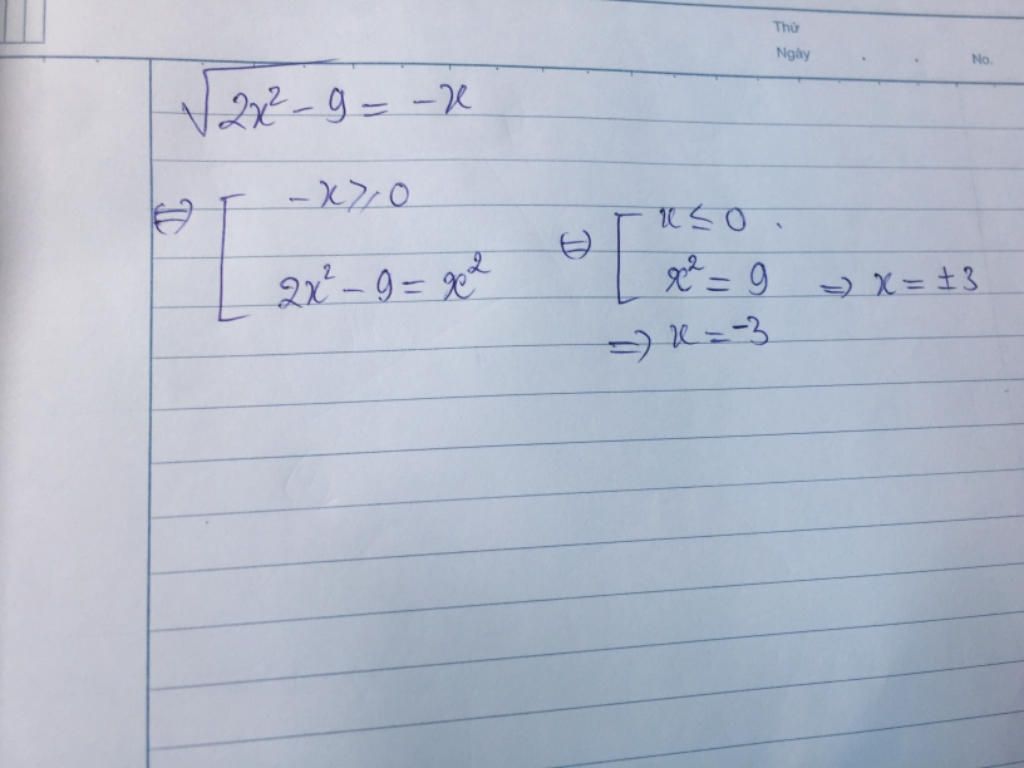 Thứ
Ngày . . No.
√2x² - 9 = -x
⇔ [ -x ≥ 0
2x² - 9 = x²
⇔ [ x ≤ 0 .
x² = 9 ⇒ x = ±3
⇒ x = -3